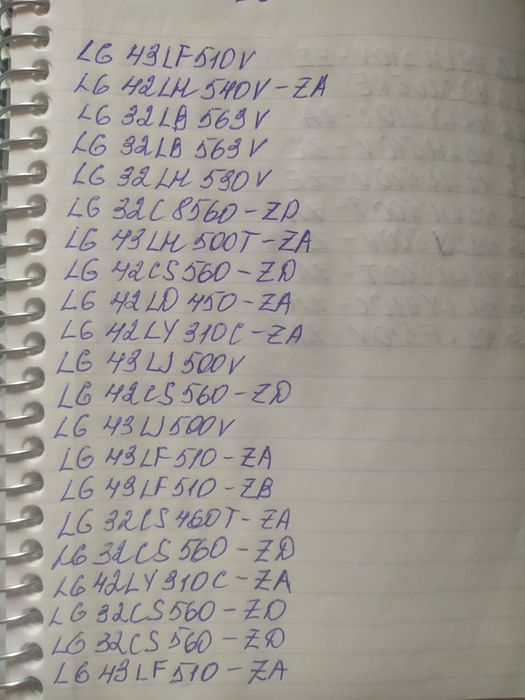 LG 43LF510V
LG 42LH540V-ZA
LG 32LB563V
LG 32LB563V
LG 32LH530V
LG 32C8560-ZD
LG 43LH500T-ZA
LG 42CS560-ZD
LG 42LD450-ZA
LG 42LY310C-ZA
LG 43LJ500V
LG 42CS560-ZD
LG 43LJ500V
LG 43LF510-ZA
LG 43LF510-ZB
LG 32CS460T-ZA
LG 32CS560-ZD
LG 42LY310C-ZA
LG 32CS560-ZD
LG 32CS560-ZD
LG 43LF510-ZA